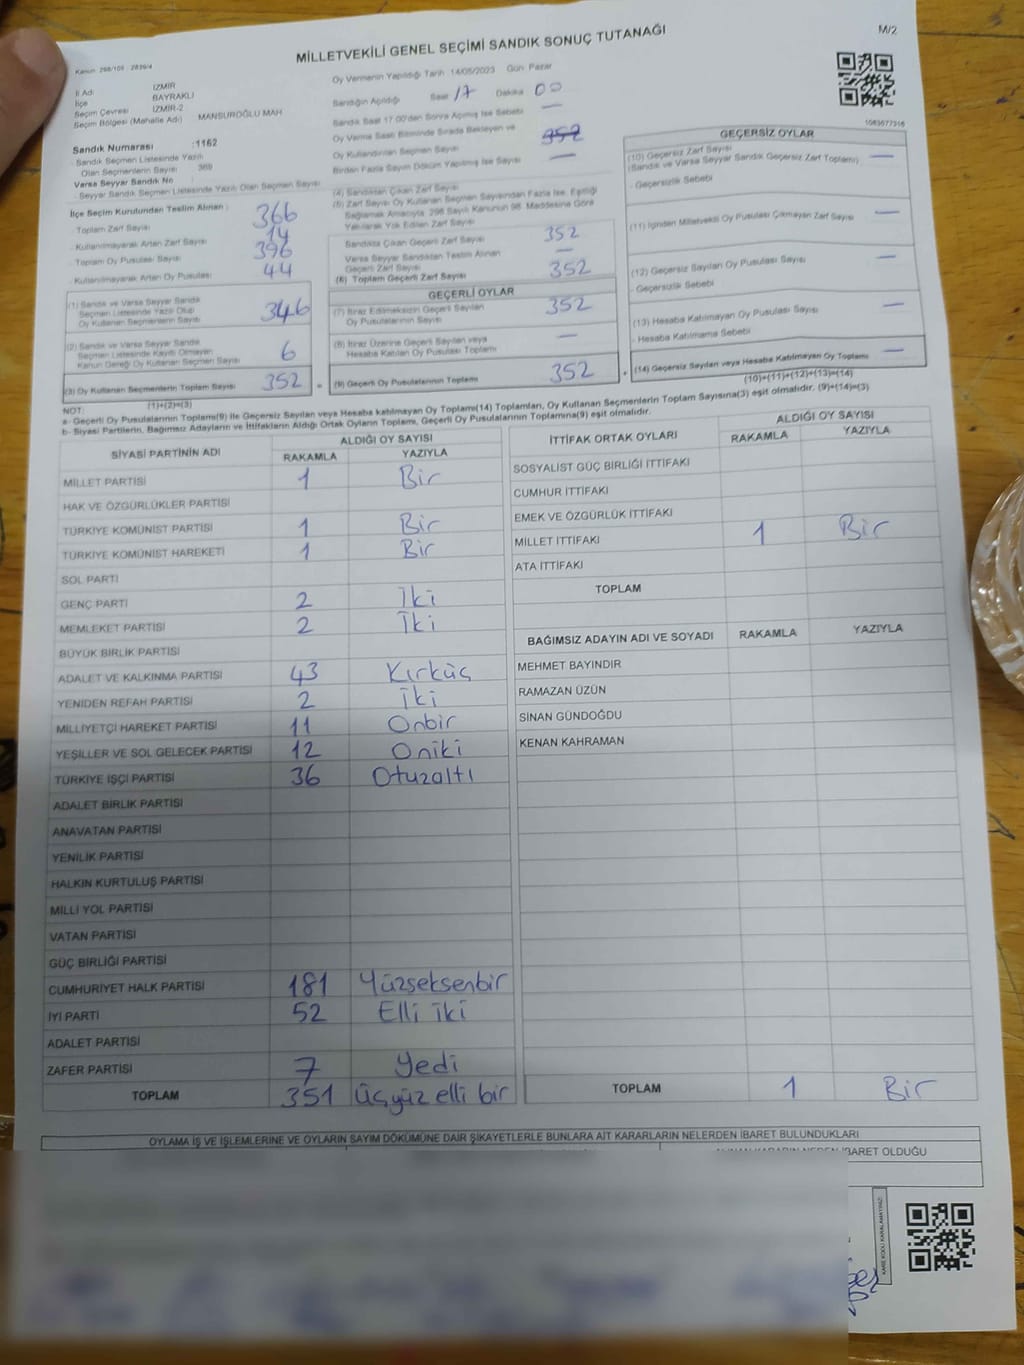 M/2
MİLLETVEKİLİ GENEL SEÇİMİ SANDIK SONUÇ TUTANAĞI
Kanun: 298/105 2839/4
İl Adı İZMİR
İlçe BAYRAKLI
Seçim Çevresi İZMİR-2
Seçim Bölgesi (Mahalle Adı) MANSUROĞLU MAH
Sandık Numarası :1162
- Sandık Seçmen Listesinde Yazılı
Olan Seçmenlerin Sayısı 369
Varsa Seyyar Sandık No
- Seyyar Sandık Seçmen Listesinde Yazılı Olan Seçmen Sayısı
İlçe Seçim Kurulundan Teslim Alınan :
- Toplam Zarf Sayısı 366
- Kullanılmayarak Artan Zarf Sayısı 14
- Toplam Oy Pusulası Sayısı 396
- Kullanılmayarak Artan Oy Pusulası 44
(1) Sandık ve Varsa Seyyar Sandık
Seçmen Listesinde Yazılı Olup
Oy Kullanan Seçmenlerin Sayısı 346
(2) Sandık ve Varsa Seyyar Sandık
Seçmen Listesinde Kayıtlı Olmayan
Kanun Gereği Oy Kullanan Seçmen Sayısı 6
(3) Oy Kullanan Seçmenlerin Toplam Sayısı 352
(1)+(2)=(3)
Oy Vermenin Yapıldığı Tarih 14/05/2023 Gün Pazar
Sandığın Açıldığı Saat 17 Dakika 00
Sandık Saat 17.00'den Sonra Açılmış İse Sebebi —
Oy Verme Saati Bitiminde Sırada Bekleyen ve
Oy Kullandırılan Seçmen Sayısı 352
Birden Fazla Sayım Döküm Yapılmış İse Sayısı —
(4) Sandıktan Çıkan Zarf Sayısı
(5) Zarf Sayısı Oy Kullanan Seçmen Sayısından Fazla İse, Eşitliği
Sağlamak Amacıyla, 298 Sayılı Kanunun 98. Maddesine Göre
Yakılarak Yok Edilen Zarf Sayısı
Sandıkta Çıkan Geçerli Zarf Sayısı 352
Varsa Seyyar Sandıktan Teslim Alınan
Geçerli Zarf Sayısı —
(6) Toplam Geçerli Zarf Sayısı 352
GEÇERLİ OYLAR
(7) İtiraz Edilmeksizin Geçerli Sayılan
Oy Pusulalarının Sayısı 352
(8) İtiraz Üzerine Geçerli Sayılan veya
Hesaba Katılan Oy Pusulası Toplamı —
(9) Geçerli Oy Pusulalarının Toplamı 352
1083677316
GEÇERSİZ OYLAR
(10) Geçersiz Zarf Sayısı
(Sandık ve Varsa Seyyar Sandık Geçersiz Zarf Toplamı) —
- Geçersizlik Sebebi
(11) İçinden Milletvekili Oy Pusulası Çıkmayan Zarf Sayısı —
(12) Geçersiz Sayılan Oy Pusulası Sayısı —
- Geçersizlik Sebebi
(13) Hesaba Katılmayan Oy Pusulası Sayısı —
- Hesaba Katılmama Sebebi
(14) Geçersiz Sayılan veya Hesaba Katılmayan Oy Toplamı —
(10)+(11)+(12)+(13)=(14)
NOT:
a- Geçerli Oy Pusulalarının Toplamı(9) ile Geçersiz Sayılan veya Hesaba katılmayan Oy Toplamı(14) Toplamları, Oy Kullanan Seçmenlerin Toplam Sayısına(3) eşit olmalıdır. (9)+(14)=(3)
b- Siyasi Partilerin, Bağımsız Adayların ve İttifakların Aldığı Ortak Oyların Toplamı, Geçerli Oy Pusulalarının Toplamına(9) eşit olmalıdır.
SİYASİ PARTİNİN ADI ALDIĞI OY SAYISI
RAKAMLA YAZIYLA
MİLLET PARTİSİ 1 Bir
HAK VE ÖZGÜRLÜKLER PARTİSİ
TÜRKİYE KOMÜNİST PARTİSİ 1 Bir
TÜRKİYE KOMÜNİST HAREKETİ 1 Bir
SOL PARTİ
GENÇ PARTİ 2 İki
MEMLEKET PARTİSİ 2 İki
BÜYÜK BİRLİK PARTİSİ
ADALET VE KALKINMA PARTİSİ 43 Kırküç
YENİDEN REFAH PARTİSİ 2 İki
MİLLİYETÇİ HAREKET PARTİSİ 11 Onbir
YEŞİLLER VE SOL GELECEK PARTİSİ 12 Oniki
TÜRKİYE İŞÇİ PARTİSİ 36 Otuzaltı
ADALET BİRLİK PARTİSİ
ANAVATAN PARTİSİ
YENİLİK PARTİSİ
HALKIN KURTULUŞ PARTİSİ
MİLLİ YOL PARTİSİ
VATAN PARTİSİ
GÜÇ BİRLİĞİ PARTİSİ
CUMHURİYET HALK PARTİSİ 181 Yüzseksenbir
İYİ PARTİ 52 Elli iki
ADALET PARTİSİ
ZAFER PARTİSİ 7 Yedi
TOPLAM 351 Üçyüz elli bir
İTTİFAK ORTAK OYLARI ALDIĞI OY SAYISI
RAKAMLA YAZIYLA
SOSYALİST GÜÇ BİRLİĞİ İTTİFAKI
CUMHUR İTTİFAKI
EMEK VE ÖZGÜRLÜK İTTİFAKI
MİLLET İTTİFAKI 1 Bir
ATA İTTİFAKI
TOPLAM
BAĞIMSIZ ADAYIN ADI VE SOYADI RAKAMLA YAZIYLA
MEHMET BAYINDIR
RAMAZAN ÜZÜN
SİNAN GÜNDOĞDU
KENAN KAHRAMAN
TOPLAM 1 Bir
OYLAMA İŞ VE İŞLEMLERİNE VE OYLARIN SAYIM DÖKÜMÜNE DAİR ŞİKAYETLERLE BUNLARA AİT KARARLARIN NELERDEN İBARET BULUNDUKLARI
İBARET OLDUĞU
KARE KODU KARALAMAYINIZ!